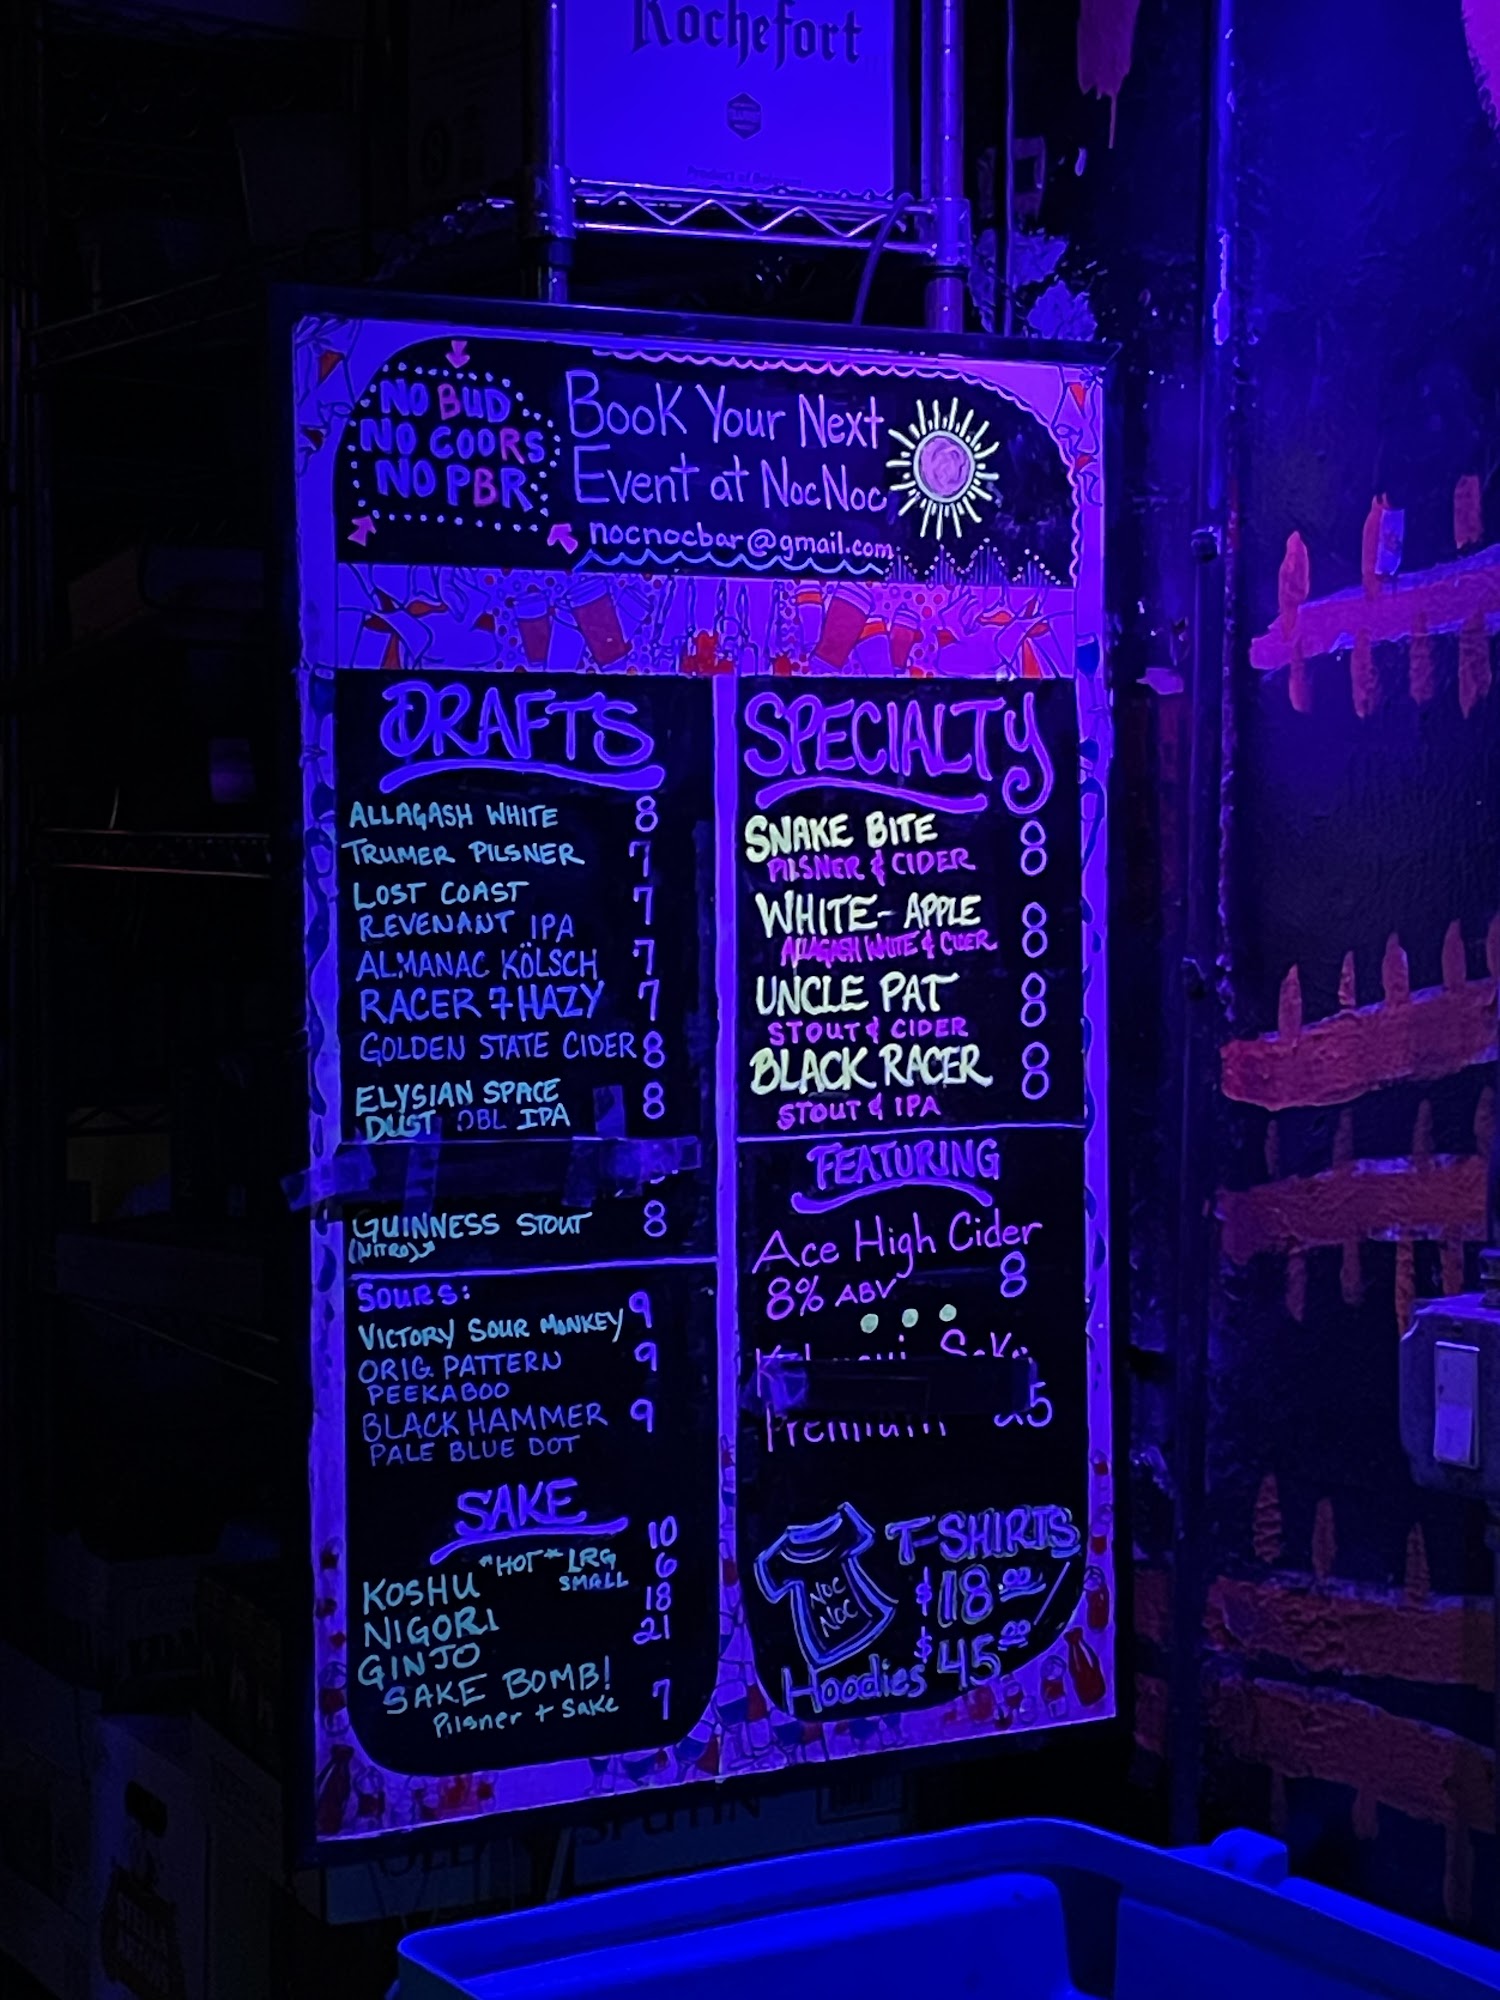 Rochefort
Product of Belgium
NO BUD
NO COORS
NO PBR
Book Your Next
Event at NocNoc
nocnocbar@gmail.com
DRAFTS
ALLAGASH WHITE 8
TRUMER PILSNER 7
LOST COAST 7
REVENANT IPA
ALMANAC KÖLSCH 7
RACER 7 HAZY 7
GOLDEN STATE CIDER 8
ELYSIAN SPACE 8
DUST DBL IPA
GUINNESS STOUT 8
(NITRO)
SOURS:
VICTORY SOUR MONKEY 9
ORIG. PATTERN 9
PEEKABOO
BLACK HAMMER 9
PALE BLUE DOT
SAKE
10
"HOT" LRG 6
KOSHU SMALL
18
NIGORI 21
GINJO
SAKE BOMB!
Pilsner + Sake 7
SPECIALTY
SNAKE BITE 8
PILSNER & CIDER 8
WHITE-APPLE 8
ALLAGASH WHITE & CIDER 8
UNCLE PAT 8
STOUT & CIDER 8
BLACK RACER 8
STOUT & IPA 8
FEATURING
Ace High Cider
8% ABV 8
Sake
Premium
T-SHIRTS
NOC
NOC
$18.00
Hoodies $45.00